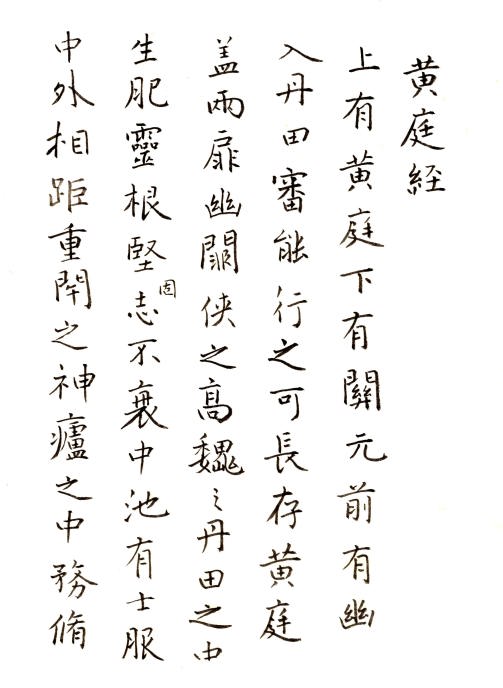 黄庭経
上有黄庭下有關元前有幽
入丹田審能行之可長存黄庭
盖兩扉幽闕侠之高魏〻丹田之中
生肥靈根堅固志不衰中池有士服
中外相距重閇之神廬之中務脩